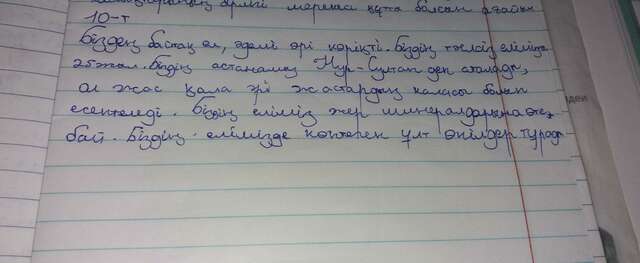 мерекесі құтты болсын ағайын
10-т
Біздең бастақ ел, әдемі әрі көрікті. Біздің тәуелсіз елімізге
25 жыл. Біздің астанамыз Нур-Султан деп аталады,
ол жас қала әрі жастардың қаласы болып
есептеледі. Біздің еліміз жер минералдарына өте
бай. Біздің елімізде көптеген ұлт өкілдер тұрады